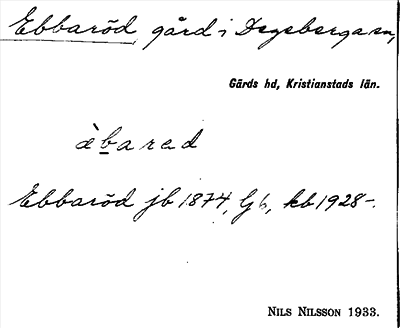 Ebbaröd gård i Degeberga sn,
Gärds hd, Kristianstads län.
àb̲ared
Ebbaröd jb 1874, Gj 6, kb 1928-.
NILS NILSSON 1933.